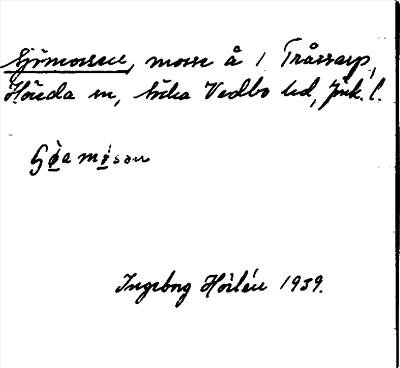 Sjömossen, mosse å 1 Tråssarp,
Höreda sn, södra Vedbo hd, Jönk. l.
Ingeborg Hörlén 1939.